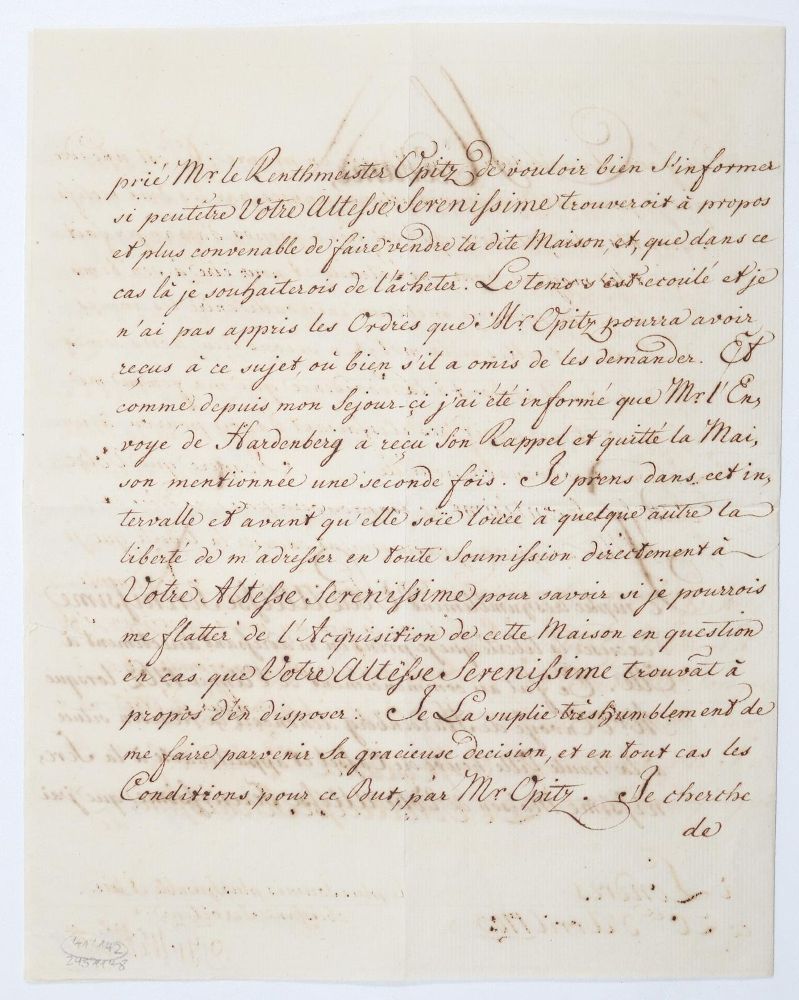 prié Mr le Renthmeister Opitz de vouloir bien s'informer
si peutétre Votre Altesse Serenissime trouveroit à propos
et plus convenable de faire vendre la dite Maison, et, que dans ce
cas là je souhaiterois de l'acheter. Le tems s'est ecoulé et je
n'ai pas appris les Ordres que Mr Opitz pourra avoir
reçus à ce sujet, où bien s'il a omis de les demander. Et
comme depuis mon Sejour-ci j'ai été informé que Mr l'En,
voyé de Hardenberg à reçu Son Rappel et quitté la Mai,
son mentionnée une seconde fois. Je prens dans cet in,
tervalle et avant qu'elle soie louée à quelque autre la
liberté de m'adresser en toute Soumission directement à
Votre Altesse Serenissime pour savoir si je pourrois
me flatter de l'Acquisition de cette Maison en question
en cas que Votre Altesse Serenissime trouvat à
propos d'en disposer. Je La suplie trèshumblement de
me faire parvenir Sa gracieuse decision, et en tout cas les
Conditions pour ce But, par Mr Opitz. Je cherche
de